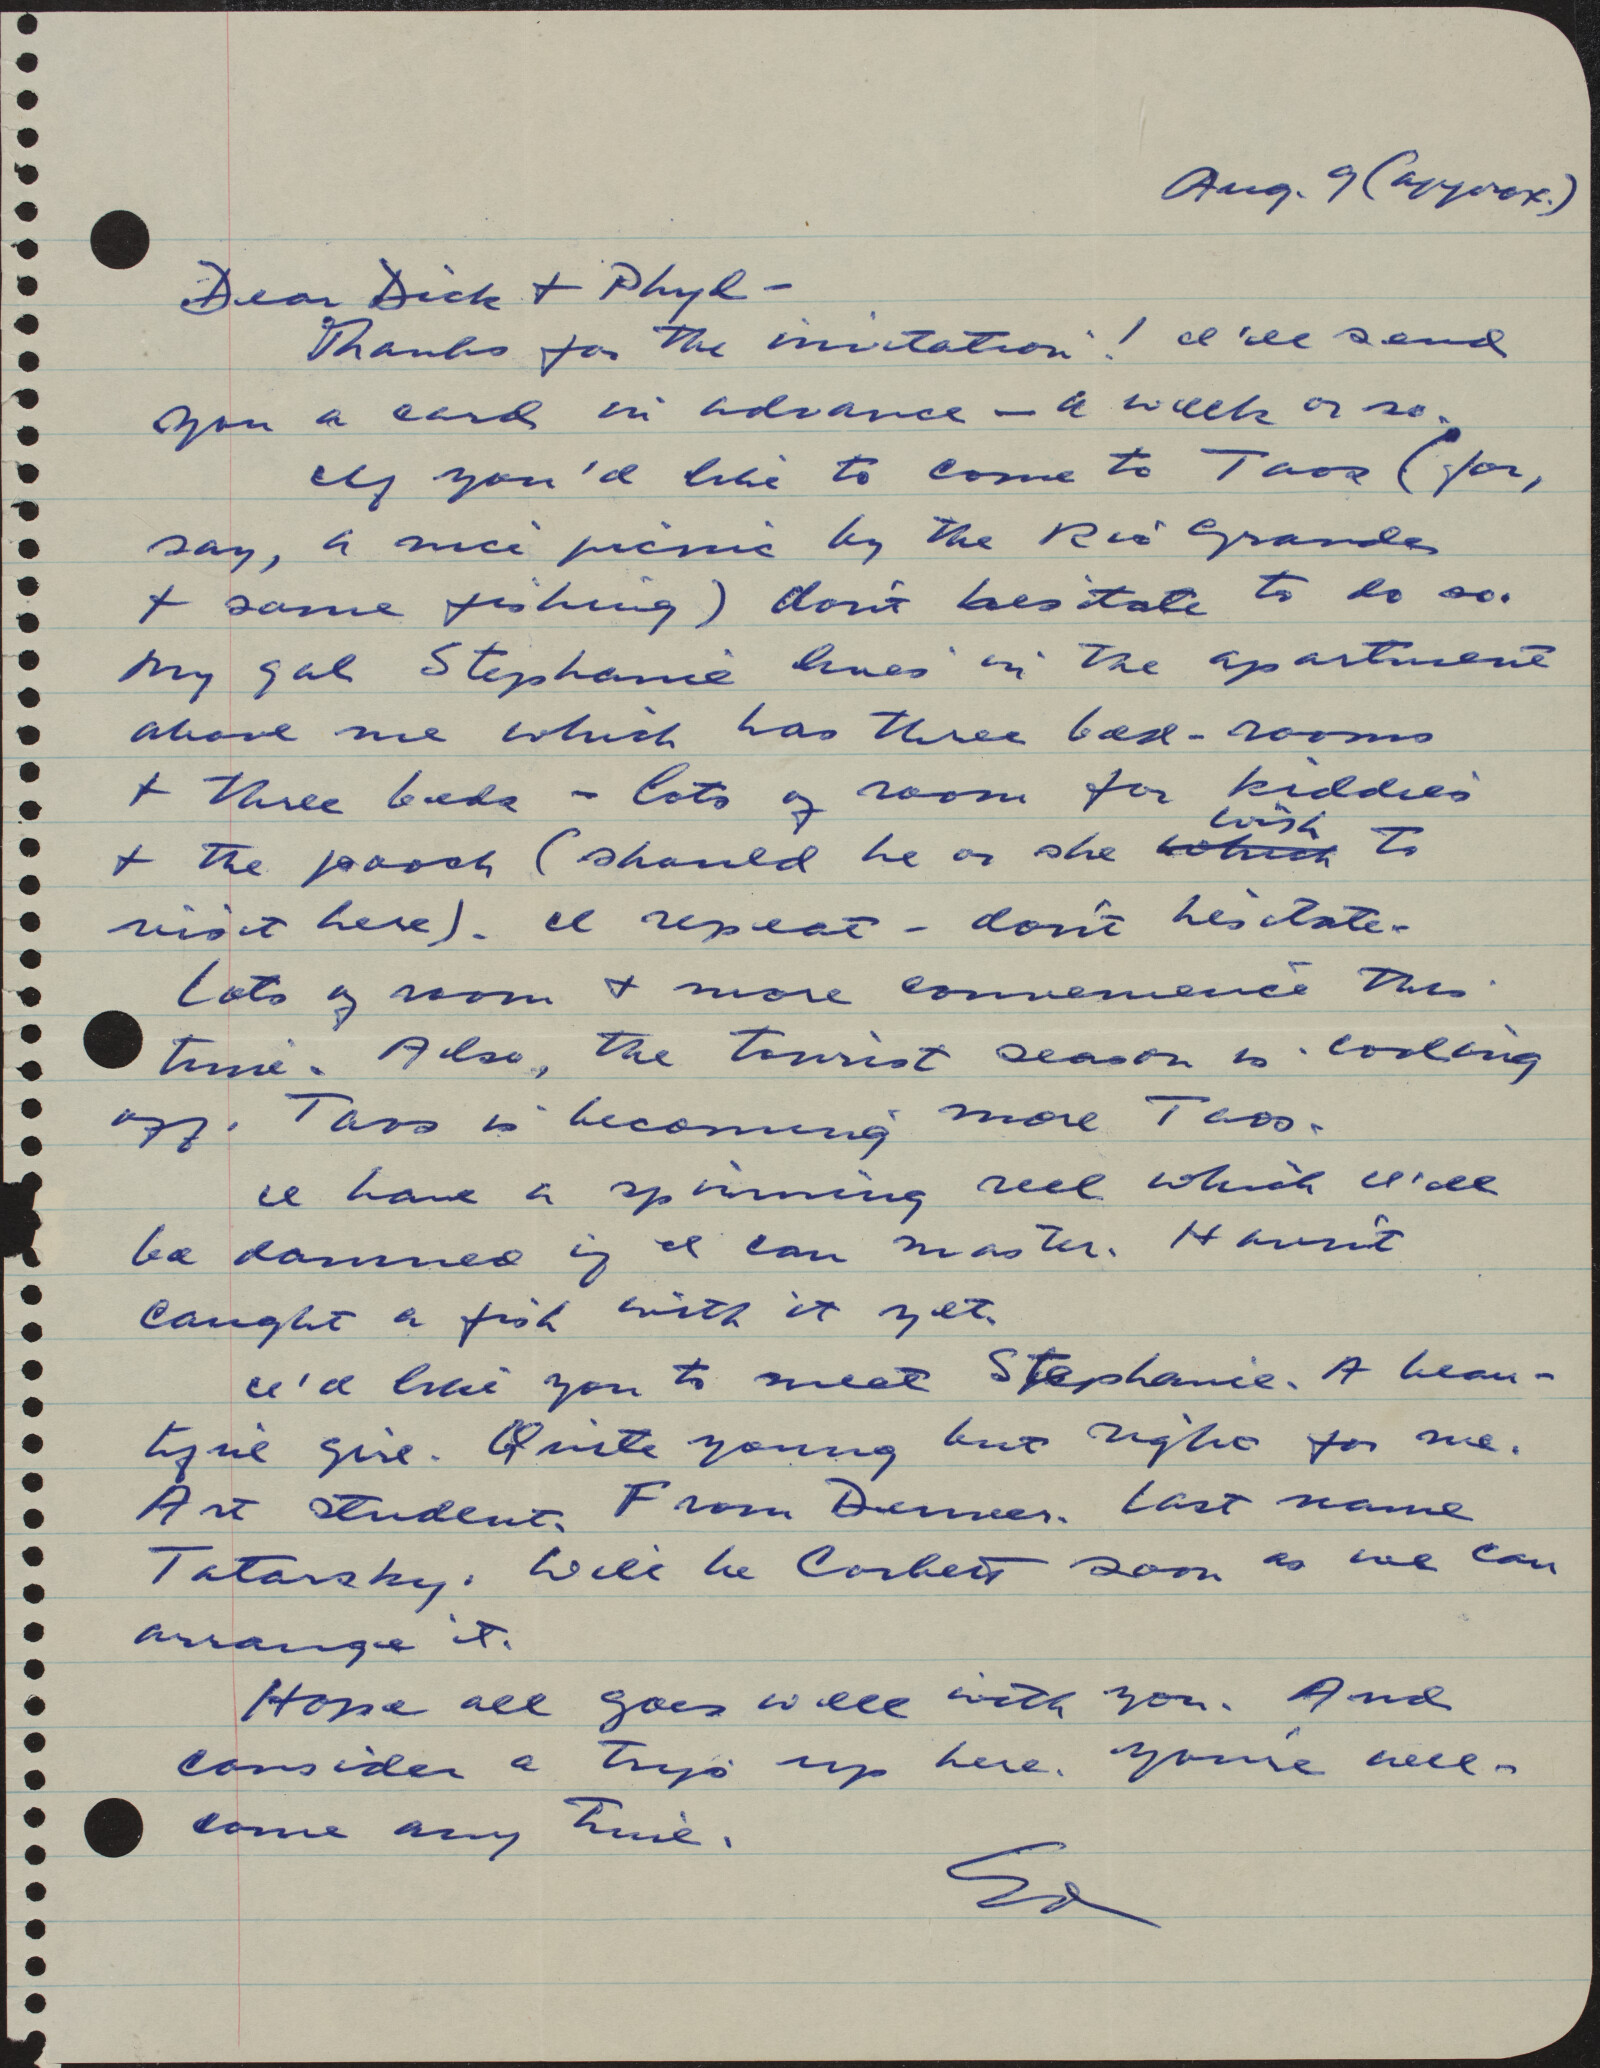 Aug. 9 (approx.)
Dear Dick + Phyl -
Thanks for the invitation! I'll send
you a card in advance - a week or so.
If you'd like to come to Taos (for,
say, a nice picnic by the Rio Grande
+ some fishing) don't hesitate to do so.
My gal Stephanie lives in the apartment
above me which has three bed-rooms
+ three beds - lots of room for kiddies
+ the pooch (should he or she which wish to
visit here). I repeat - don't hesitate.
Lots of room + more convenience this
time. Also, the tourist season is cooling
off. Taos is becoming more Taos.
I have a spinning reel which I'll
be damned if I can master. Haven't
caught a fish with it yet.
I'd like you to meet Stephanie. A beau-
tiful girl. Quite young but right for me.
Art student. From Denver. Last name
Tatarsky. Will be Corbett soon as we can
arrange it.
Hope all goes well with you. And
consider a trip up here. You're well-
come any time.
Ed